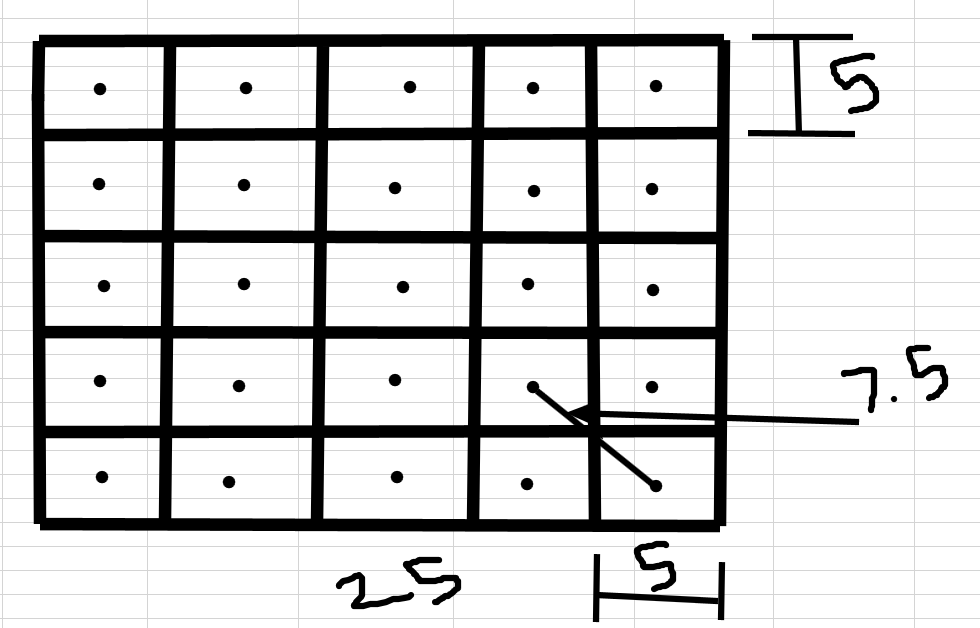 5
7.5
25
5